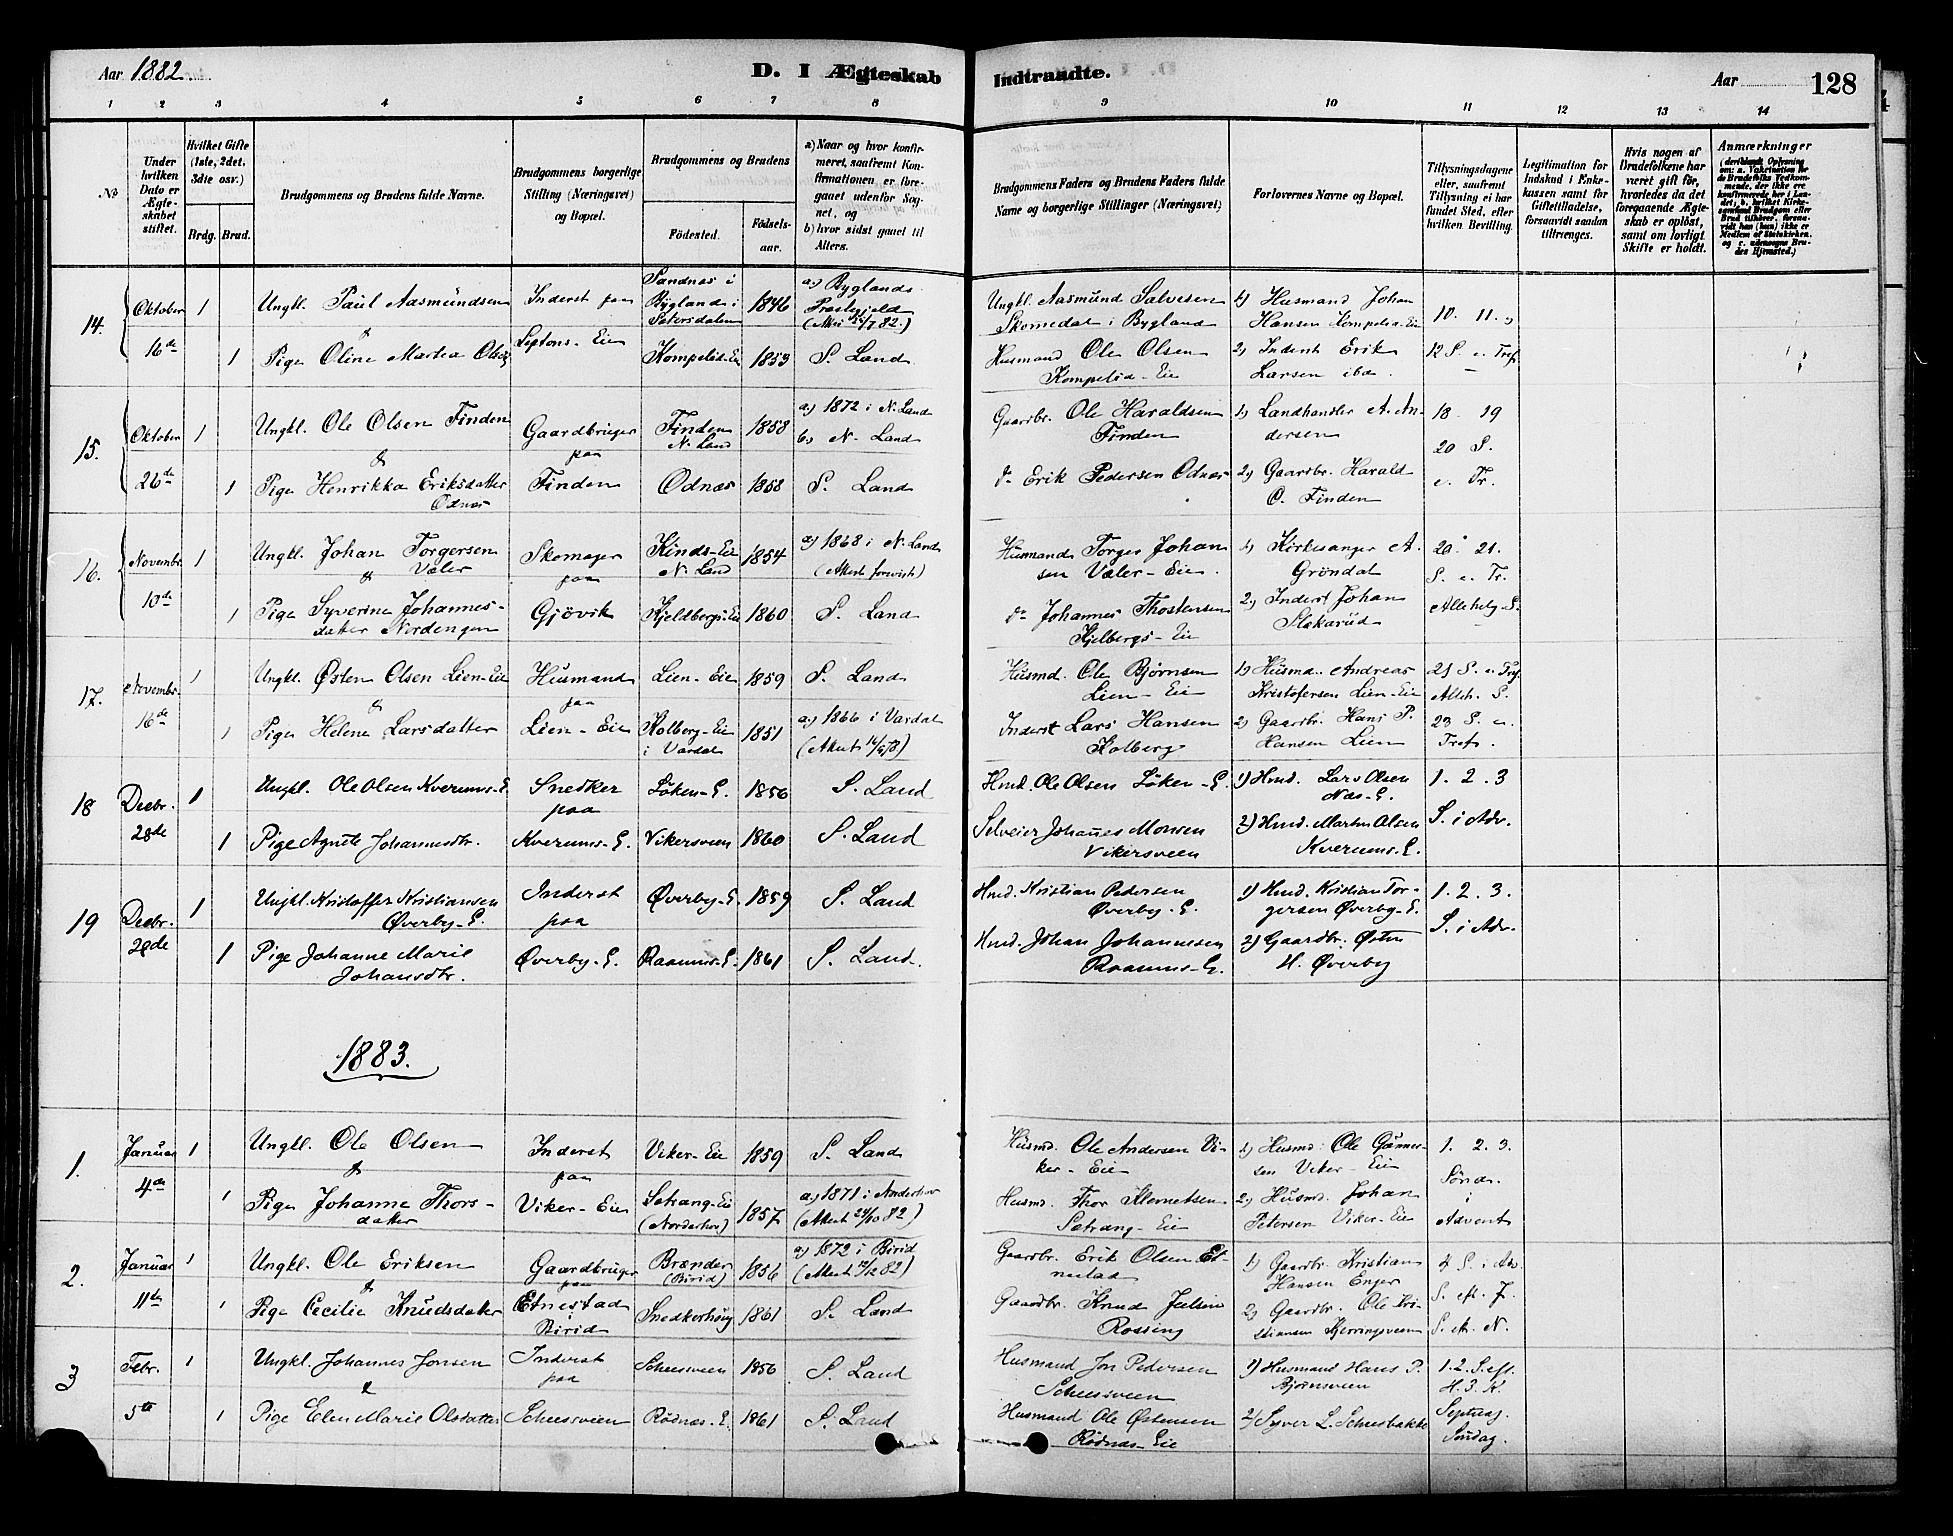 Aar 1882 D. I Ægteskab Indtraadte. Aar 128
1 2 3 4 5 6 7 8 9 10 11 12 13 14
№
Under hvilken Dato er Ægteskabet stiftet.
Hvilket Gifte (1ste, 2det, 3die osv.)
Brdg. Brud.
Brudgommens og Brudens fulde Navne.
Brudgommens borgerlige Stilling (Næringsvei) og Bopæl.
Brudgommens og Brudens
Fødested. Fødselsaar.
a) Naar og hvor konfirmeret, saafremt Konfirmationen er foregaaet udenfor Sognet, og
b) hvor sidst gaaet til Alters.
Brudgommens Faders og Brudens Faders fulde Navne og borgerlige Stillinger (Næringsvei)
Forlovernes Navne og Bopæl.
Tillysningsdagene eller, saafremt Tillysning ei har fundet Sted, efter hvilken Bevilling.
Legitimation for Indskud i Enkekassen samt for Giftetilladelse, forsaavidt saadan tiltrænges.
Hvis nogen af Brudefolkene har været gift før, hvorledes da det foregaaende Ægteskab er opløst, samt om lovligt Skifte er holdt.
Anmærkninger
14. Oktober 16de
1 Ungkl. Paul Aasmundsen Inderst paa Sandnes i Bygland i Setersdalen 1846 a) Byglands Præstegjeld
Ungkl. Aasmund Salvesen Skomedal i Bygland 1) Husmand Johan Hansen Kompelid-Eie 10. 11. o
&
1 Pige Oline Martea Olsdr Leptons-Eie Kompelid-Eie 1853 S. Land
Husmand Ole Olsen Kompelid-Eie 2) Inderst Erik Larsen ibd. 12 S. e. Tref.
15. Oktober 26de
1 Ungkl. Ole Olsen Finden Gaardbruger paa Finden N. Land 1858 a) 1872 i N. Land b) N. Land
Gaardbr. Ole Haraldsen Finden 1) Landhandler A. Andersen 18 19
&
1 Pige Henrikka Eriksdatter Odnæs Finden Odnæs 1858 S. Land
do Erik Pedersen Odnæs 2) Gaardbr. Harald O. Finden 20 S. e. Tr.
16. Novembr. 10de
1 Ungkl. Johan Torgersen Væler Skomager paa Kinds-Eie N. Land 1854 a) 1868 i N. Land (Attest forevist)
Husmand Torger Johansen Væler-Eie 1) Kirkesanger A. Gröndal 20 21. S. e. Tr.
&
1 Pige Syverine Johannesdatter Nordengen Gjövik Kjeldbergs-Eie 1860 S. Land
do Johannes Thostensen Kjelbergs-Eie 2) Inderst Johan Stakarud Allehelg. S.
17. Novembr. 16de
1 Ungkl. Østen Olsen Lien-Eie Husmand paa Lien-Eie 1859 S. Land
Husmd. Ole Bjørnsen Lien-Eie 1) Husmd. Andreas Kristofersen Lien-Eie 21 S. e. Tref. Alleh. S.
&
1 Pige Helene Larsdatter Lien-Eie Kolberg-Eie i Vardal 1851 a) 1866 i Vardal
Inderst Lars Hansen Kolberg 2) Gaardbr. Hans P. Hansen Lien 23 S. e. Tref.
18 Decbr. 28de
1 Ungkl. Ole Olsen Kverums-E. Snedker paa Løken-E. 1856 S. Land
Hmd. Ole Olsen Løken-E. 1) Hmd. Lars Olsen Næs-E. 1. 2. 3
1 Pige Agnete Johannesdtr. Kverums-E. Vikersveen 1860 S. Land
Selveier Johannes Monsen Vikersveen 2) Hmd. Martin Olsen Kverums-E. S. i Adv.
19 Decbr. 28de
1 Ungkl. Kristoffer Kristiansen Øverby-E. Inderst paa Øverby-E. 1859 S. Land
Hmd. Kristian Pedersen Øverby-E. 1) Hmd. Kristian Torgersen Øverby-E. 1. 2. 3.
1 Pige Johanne Marie Johansdtr. Øverby-E. Raaums-E. 1861 S. Land.
Hmd. Johan Johannesen Raaums-E. 2) Gaardbr. Østen H. Øverby S. i Adv.
1883.
1. Januar 4de
1 Ungkl. Ole Olsen Inderst paa Viker-Eie 1859 S. Land
Husmd. Ole Andersen Viker-Eie 1) Husmd. Ole Gunnersen Viker-Eie 1. 2. 3.
&
1 Pige Johanne Thorsdatter Viker-Eie Sætrang-Eie (Norderhov) 1857 a) 1871 i Norderhov (Attest 24/10 82)
Husmd. Thor Klemetsen Sætrang-Eie 2) Husmd. Johan Petersen Viker-Eie Sönd. i Advent
2. Januar 11de
1 Ungkl. Ole Eriksen Gaardbruger paa Brænder (Birid) 1856 a) 1872 i Birid (Attest 12/12 82)
Gaardbr. Erik Olsen Etnestad 1) Gaardbr. Kristian Hansen Enger 4 S. i Adv.
&
1 Pige Cecilie Knudsdatter Etnestad Birid Snedkerhaug 1861 S. Land
Gaardbr. Knud Julsen Rossing 2) Gaardbr. Ole Kristiansen Herringsveen S. eft. J. S. eft. N.
3 Febr. 5te
1 Ungkl. Johannes Jonsen Inderst paa Scheesveen 1856 S. Land
Husmand Jon Pedersen Scheesveen 1) Husmand Hans P. Bjørnsveen 1. 2. S. eft. H. 3. K.
&
1 Pige Elen Marie Olsdatter Scheesveen Rødnæs-E. 1861 S. Land
Husmand Ole Østensen Rødnæs-Eie 2) Syver L. Scheesbakke Septuag. Søndag.